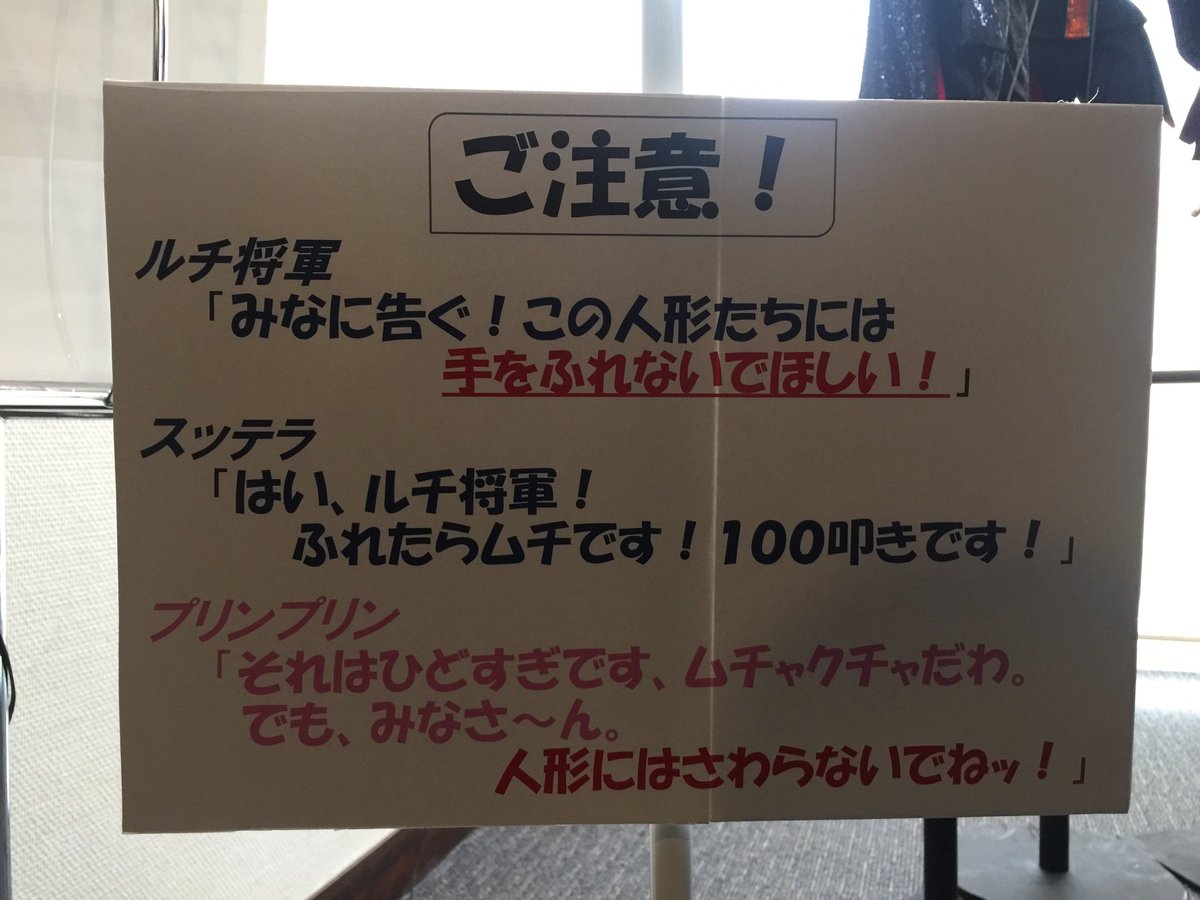 ご注意！
ルチ将軍
「みなに告ぐ！この人形たちには
手をふれないでほしい！」
スッテラ
「はい、ルチ将軍！
ふれたらムチです！100叩きです！」
プリンプリン
「それはひどすぎです、ムチャクチャだわ。
でも、みなさ～ん。
人形にはさわらないでねッ！」